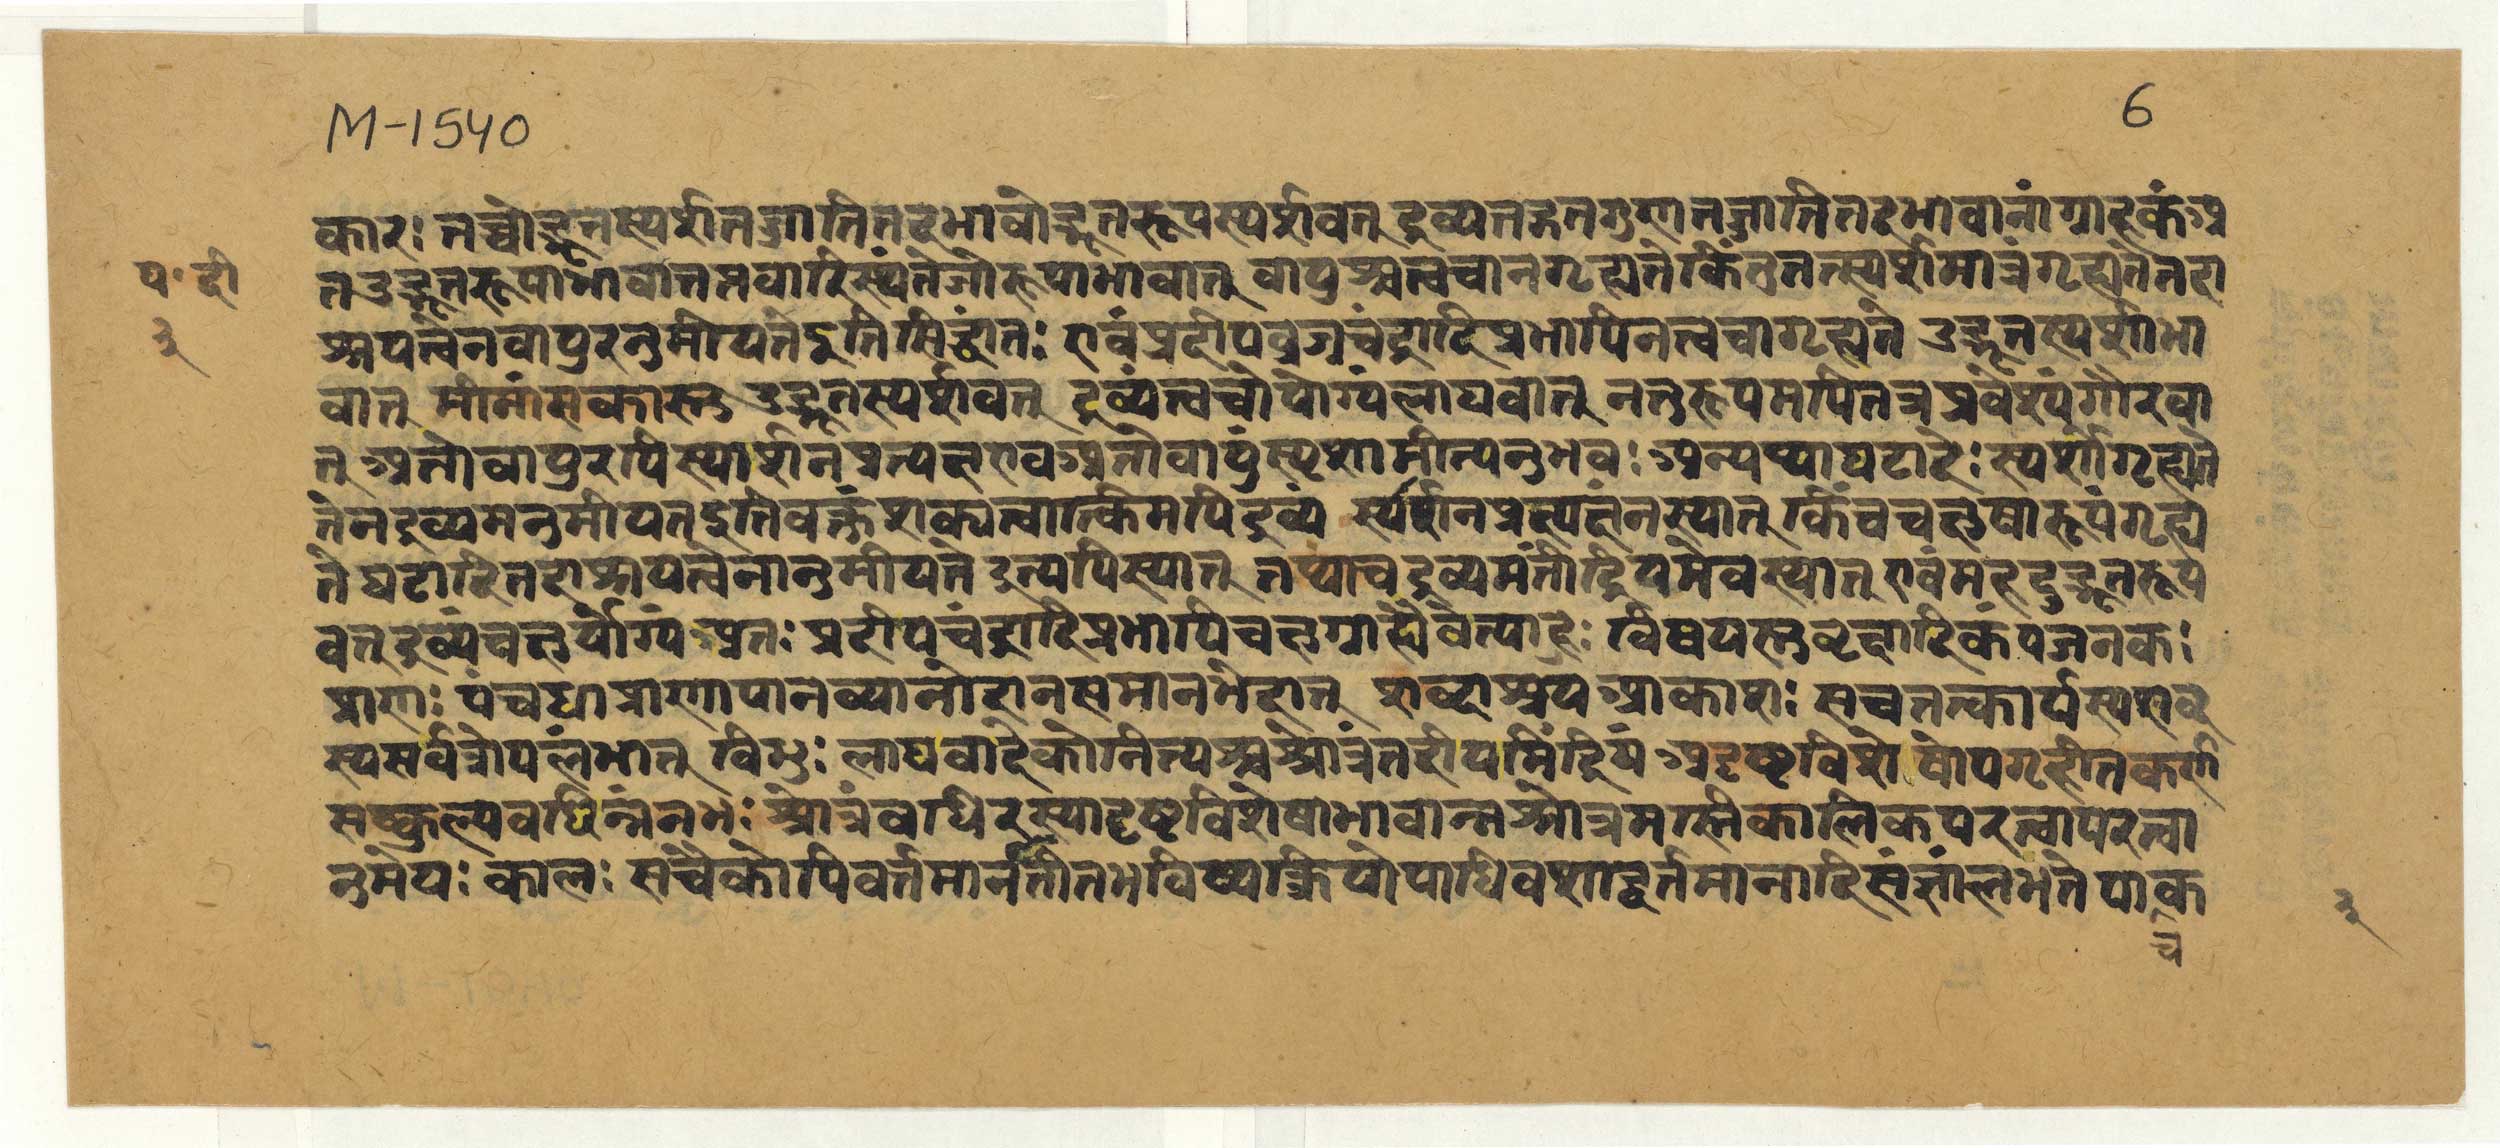 M-1540
6
कारः तच्चोद्भूतस्पर्शतज्जातितदभावोद्भूतरूपस्पर्शवत् द्रव्यतद्गतगुणतज्जातितदभावानां ग्राहकं अ
त उद्भूतरूपाभावात्तप्तवारिस्थंतेजोरूपाभावात् वायुश्च त्वचा न गृह्यते किंतु तत्स्पर्शमात्रं गृह्यते तदा
प॰ दी
३
श्रयत्वेन वायुरनुमीयते इति सिद्धांतः एवं प्रदीपवज्रचंद्रादिप्रभापि न त्वचा गृह्यते उद्भूतस्पर्शाभा
वात् मीमांसकास्तु उद्भूतस्पर्शवत् द्रव्यं त्वचो योग्यं लाघवात् नतु रूपमपि तत्र प्रवेश्यं गौरवा
त् अतो वायुरपि स्पार्शनप्रत्यक्ष एव अतो वायुं स्पृशामीत्यनुभवः अन्यथा घटादेः स्पर्शो गृह्यते
तेन द्रव्यमनुमीयत इति वक्तुं शक्यत्वात्किमपि द्रव्यं स्पर्शनप्रत्यक्षं न स्यात् किंच चक्षुषा रूपं गृह्य
ते घटादि तदाश्रयत्वेनानुमीयते इत्यपि स्यात् तथाच द्रव्यमतींद्रियमेव स्यात् एवं महदुद्भूतरूप
वत् द्रव्यं चक्षुर्योग्यं अतः प्रदीपचंद्रादिप्रभापि चक्षुग्राह्यैवेत्याहुः विषयस्तु वृक्षादिकंपजनकः
प्राणः पंचधा प्राणापानव्यानोदानसमानभेदात् शब्दाश्रय आकाशः स च तत्कार्यस्य शब्द
स्य सर्वत्रोपलंभात् विभुः लाघवादेको नित्यश्च श्रोत्रं तदीयमिंद्रियं अदृष्टविशेषोपगृहीतकर्ण
सष्कुल्यवछिन्नं नभः श्रोत्रं बधिरस्यादृष्टविशेषाभावान्न श्रोत्रमस्ति कालिकपरत्वापरत्वा
नुमेयः कालः स चैकोपि वर्तमानातीतभविष्यत्क्रियोपाधिवशाद्वर्तमानादिसंज्ञां लभते पाक
३
च